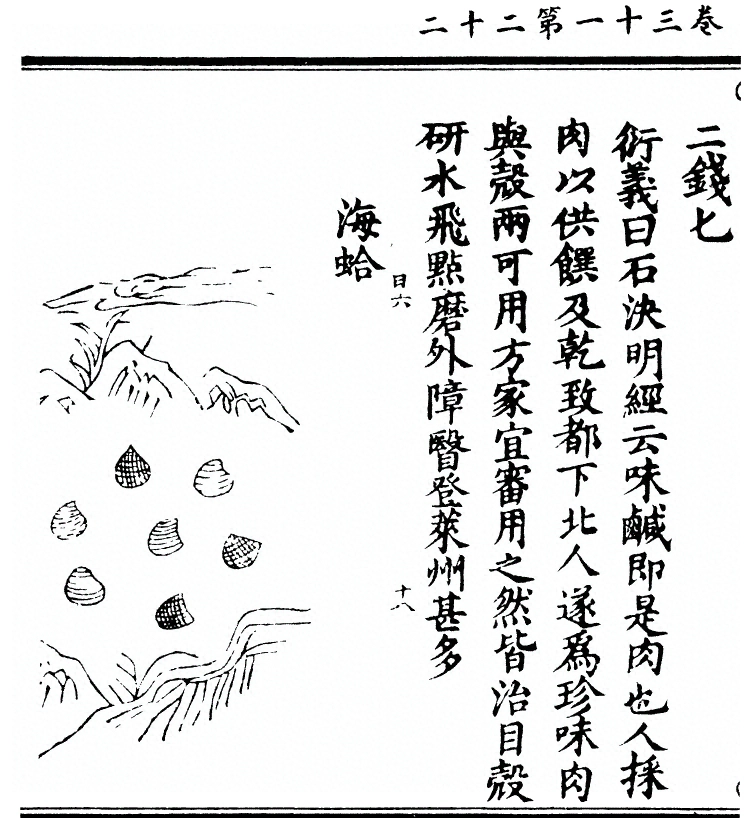 卷三十一第二十二
二錢匕
衍義曰石決明經云味鹹即是肉也人採
肉以供饌及乾致都下北人遂爲珍味肉
與殼兩可用方家宜審用之然皆治目殼
研水飛點磨外障瞖登萊州甚多
日六
十八
海蛤